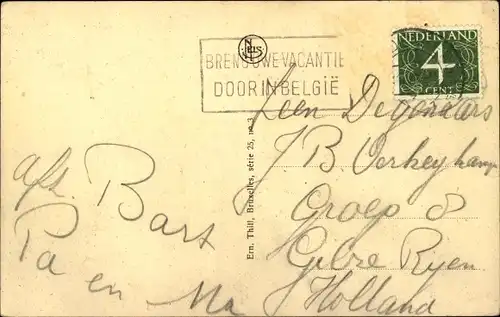 NELS
BRENG UWE VACANTIE
DOOR IN BELGIË
NEDERLAND
4
CENT
Ern. Thill, Bruxelles, série 25, no 3
afs. Bart
Pa en Ma
Leen
J B Verkey kamp
Groep 8
Gilze Rijen
Holland